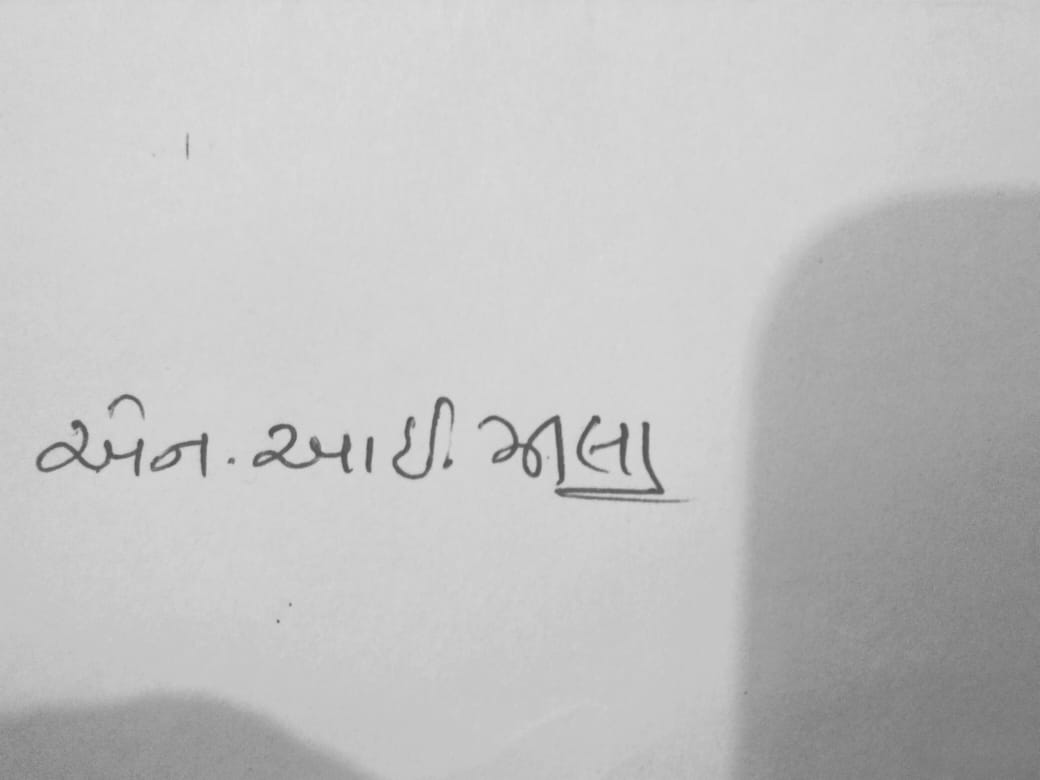 એન. આઈ. ઝાલા